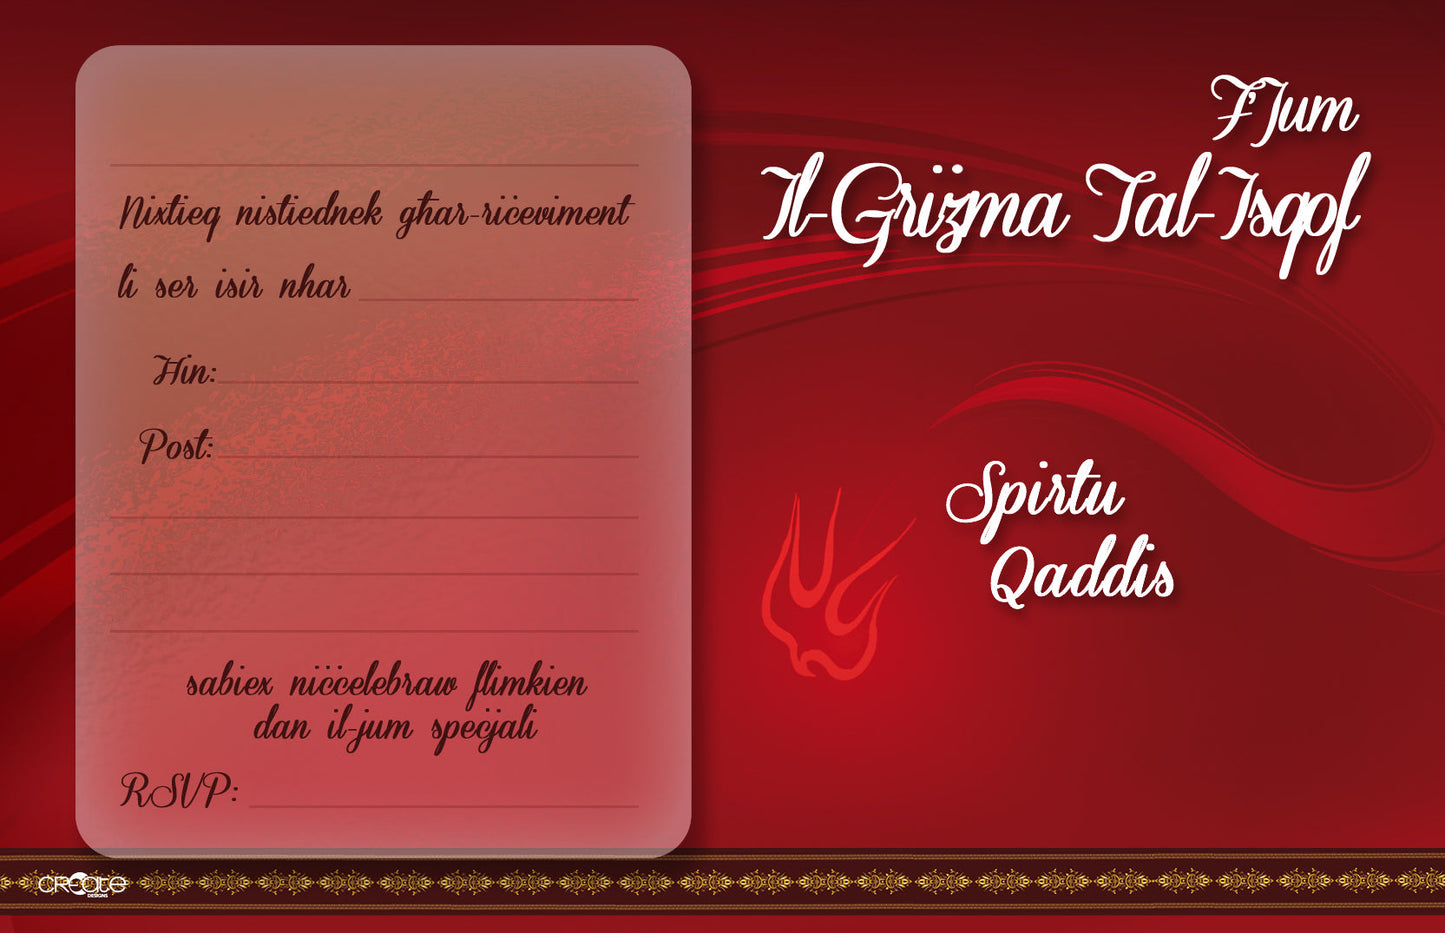 Nixtieq nistiednek għar-riċeviment
li ser isir nhar
Ħin:
Post:
sabiex niċċelebraw flimkien
dan il-jum speċjali
RSVP:
F'Jum
Il-Griżma Tal-Isqof
Spirtu
Qaddis
CREate
DESIGNS